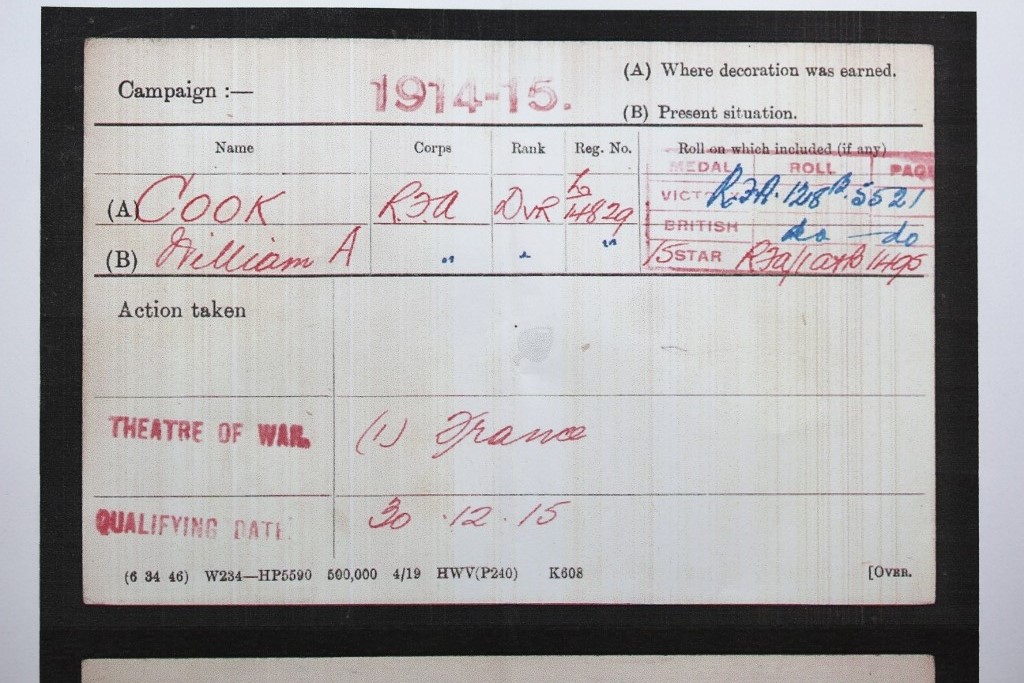 Campaign :— 1914-15. (A) Where decoration was earned.
(B) Present situation.
Name Corps Rank Reg. No. Roll on which included (if any)
MEDAL ROLL PAGE
(A) COOK RFA DVR L/14829 VICTORY RFA.128B. 5521
BRITISH do — do
(B) William A " " " 15 STAR RFA/1 1495
Action taken
THEATRE OF WAR. (1) France
QUALIFYING DATE. 30.12.15
(6 34 46) W234—HP5590 500,000 4/19 HWV(P240) K608 [OVER.